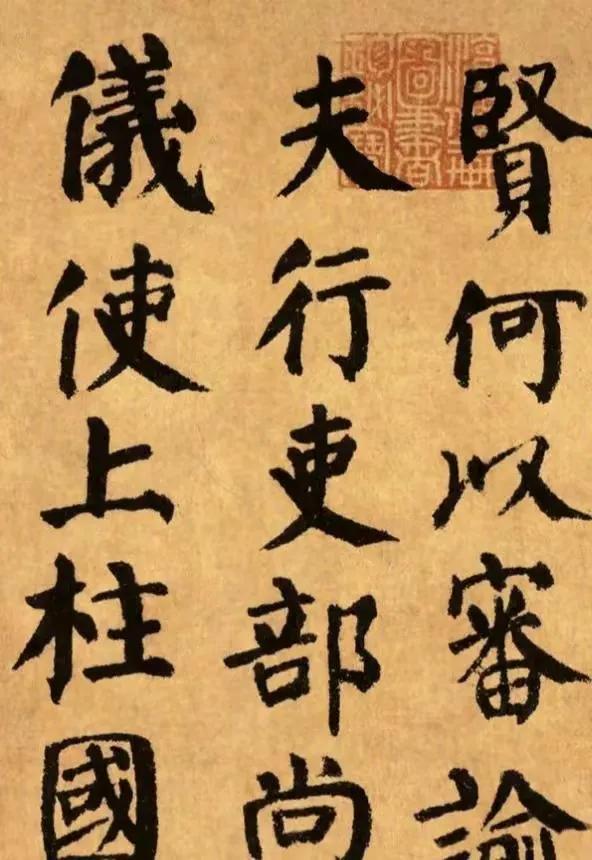 賢何以審諭
夫行吏部尚
儀使上柱國